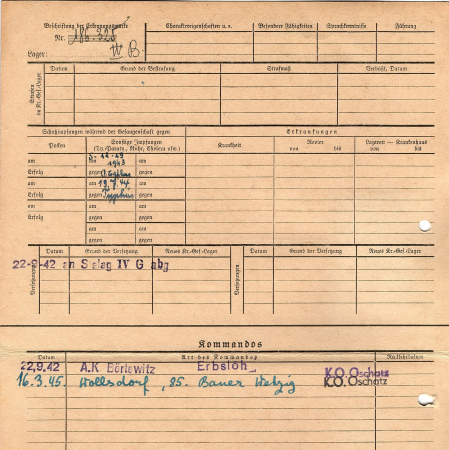 Beschriftung der Erkennungsmarke
Nr. 186.325
Lager: IV B.
Charaktereigenschaften u.s.
Besondere Fähigkeiten
Sprachkenntnisse
Führung
Strafen im Kr.-Gef.-Lager
Datum
Grund der Bestrafung
Strafmaß
Verbüßt, Datum
Schutzimpfungen während der Gefangenschaft gegen
Erkrankungen
Pocken
Sonstige Impfungen
(Ty.-Paraty., Ruhr, Cholera usw.)
Krankheit
Revier
von bis
Lazarett — Krankenhaus
von bis
am am am
1943
Erfolg gegen gegen
am am 19.7.44. am
Erfolg gegen Typhus gegen
am am am
Erfolg gegen gegen
am am
gegen gegen
Versetzungen
Datum
Grund der Versetzung
Neues Kr.-Gef.-Lager
Versetzungen
Datum
Grund der Versetzung
Neues Kr.-Gef.-Lager
22-9-42 an Stalag IV G abg
Kommandos
Datum
Art des Kommandos
Rückkehrdatum
22.9.42 A.K Börtewitz Erbsloh K.O. Oschatz
16.3.45. Wollsdorf, 85. Bauer K.O. Oschatz